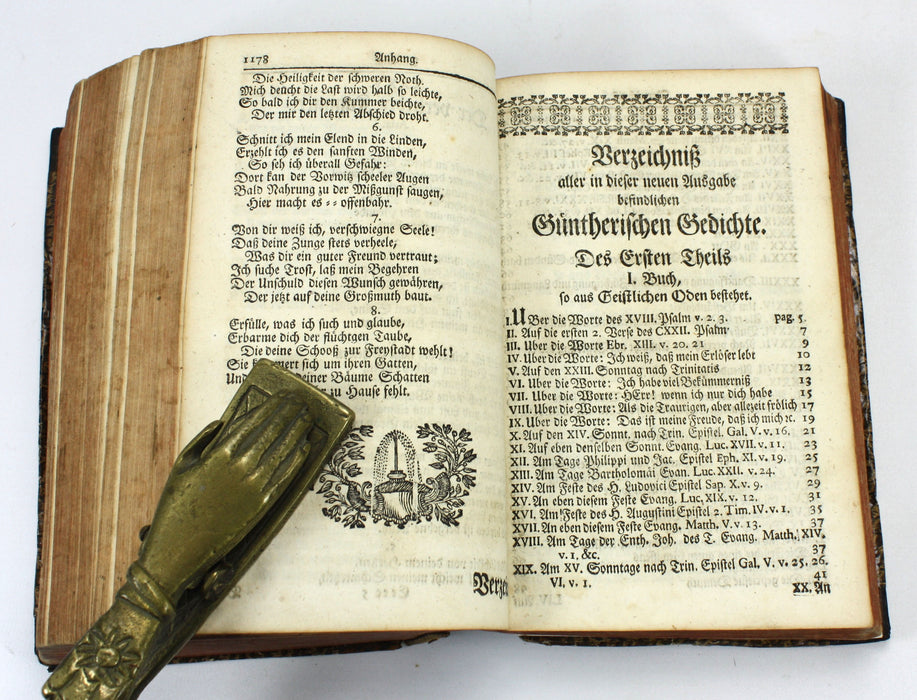 1178 Anhang.
Die Heiligkeit der schweren Noth.
Mich deucht die Last wird halb so leichte,
So bald ich dir den Kummer beichte,
Der mir den letzten Abschied droht.
6.
Schnitt ich mein Elend in die Linden,
Erzehlt ich es den sanften Winden,
So seh ich überall Gefahr:
Dort kan der Vorwitz scheeler Augen
Bald Nahrung zu der Mißgunst saugen,
Hier macht es -- offenbahr.
7.
Von dir weiß ich, verschwiegne Seele!
Daß deine Zunge stets verheele,
Was dir ein guter Freund vertraut;
Ich suche Trost, laß mein Begehren
Der Unschuld diesen Wunsch gewähren,
Der jetzt auf deine Großmuth baut.
8.
Erfülle, was ich such und glaube,
Erbarme dich der flüchtgen Taube,
Die deine Schooß zur Freystadt wehlt!
Sie sich um ihren Gatten,
Und einer Bäume Schatten
zu Hause fehlt.
Verzeichniß
aller in dieser neuen Ausgabe
befindlichen
Güntherischen Gedichte.
Des Ersten Theils
I. Buch,
so aus Geistlichen Oden bestehet.
I. UBer die Worte des XVIII. Psalm v. 2. 3. pag. 5.
II. Auf die ersten 2. Verse des CXXII. Psalm 7
III. Uber die Worte Ebr. XIII. v. 20. 21 9
IV. Uber die Worte: Ich weiß, daß mein Erlöser lebt 10
V. Auf den XXIII. Sonntag nach Trinitatis 12
VI. Uber die Worte: Ich habe viel Bekümmerniß 13
VII. Uber die Worte: HErr! wenn ich nur dich habe 15
VIII. Uber die Worte: Als die Traurigen, aber allezeit frölich 17
IX. Uber die Worte: Das ist meine Freude, daß ich mich ꝛc. 19
X. Auf den XIV. Sonnt. nach Trin. Epistel. Gal. V. v. 16. 21
XI. Auf eben denselben Sonnt. Evang. Luc. XVII. v. 11. 23
XII. Am Tage Philippi und Jac. Epistel Eph. XI. v. 19. 25
XIII. Am Tage Bartholomäi Evan. Luc. XXII. v. 24. 27
XIV. Am Feste des H. Ludovici Epistel Sap. X. v. 9. 29
XV. An eben diesem Feste Evang. Luc. XIX. v. 12. 31
XVI. Am Feste des H. Augustini Epistel 2. Tim. IV. v. 1. 35
XVII. An eben diesem Feste Evang. Matth. V. v. 13. 37
XVIII. Am Tage der Enth. Joh. des T. Evang. Matth. XIV.
v. 1. &c. 37
XIX. Am XV. Sonntage nach Trin. Epistel Gal. V. v. 25. 26.
VI. v. 1. 41
XX. An